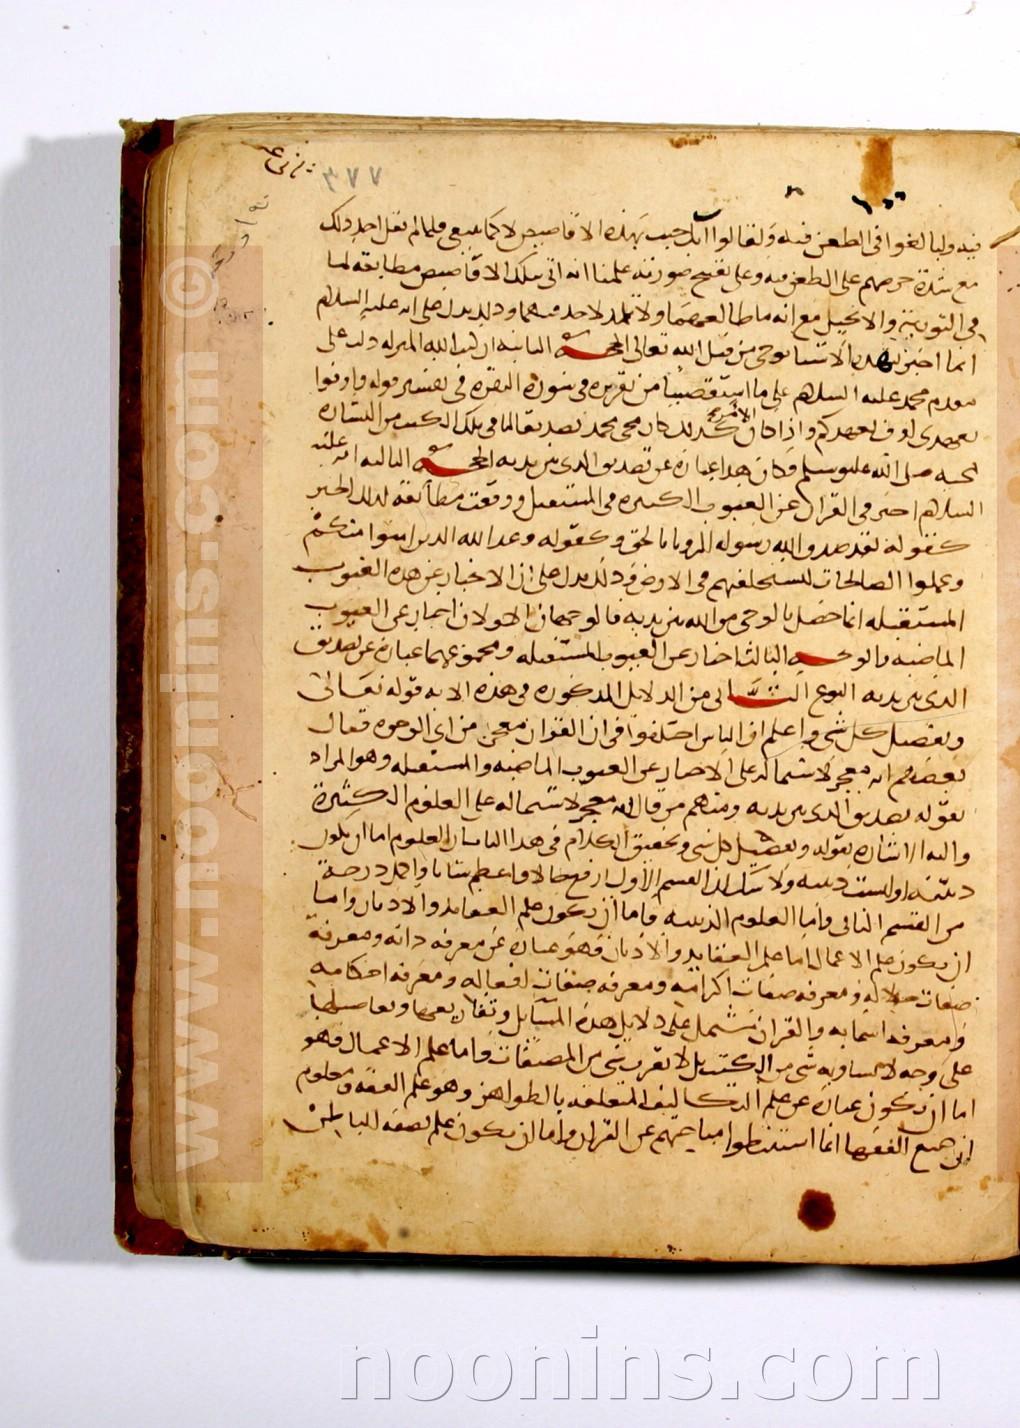 ٣٧٧
فيه ولبالغوا في الطعن فيه ولقالوا انك جيت بهذه الاقاصيص لا كما ينبغي فلما لم يقل احد ذلك
مع شدة حرصهم على الطعن فيه وعلى تقبيح صورته علمنا انه اتى بتلك الاقاصيص مطابقة لما
في التورية والانجيل مع انه ما طالعهما ولا تلمذ لاحد فيهما وذلك يدل على انه عليه السلام
انما اخبر بهذه الاشيا بوحي من قبل الله تعالى الحجة الثانية ان كتب الله المنزلة دلت على
مقدم محمد عليه السلام على ما استقصينا من تقريره في سورة البقرة في تفسير قوله واوفوا
بعهدي اوف بعهدكم واذا كان الامر كذلك كان مجي محمد تصديقا لما في تلك الكتب من البشارة
بمجيه صلى الله عليه وسلم فكان هذا عبارة عن تصديق الذي بين يديه الحجة الثالثة انه عليه
السلام اخبر في القران عن الغيوب الكثيرة في المستقبل ووقعت مطابقة لذلك الخبر
كقوله لقد صدق الله رسوله الرويا بالحق وكقوله وعد الله الذين امنوا منكم
وعملوا الصالحات ليستخلفنهم في الارض وذلك يدل على ان الاخبار عن هذه الغيوب
المستقبلة انما حصل بالوحي من الله بين يديه فالوجهان الاولان اخبار عن الغيوب
الماضية والوجه الثالث اخبار عن الغيوب المستقبلة ومجموعها عبارة عن تصديق
الذي بين يديه النوع الثاني من الدلايل المذكورة في هذه الاية قوله تعالى
وتفصيل كل شي واعلم ان الناس اختلفوا في ان القران معجز من اي الوجوه فقال
بعضهم انه معجز لاشتماله على الاخبار عن الغيوب الماضية والمستقبلة وهو المراد
بقوله تصديق الذي بين يديه ومنهم من قال انه معجز لاشتماله على العلوم الكثيرة
واليه الاشارة بقوله وتفصيل كل شي وتحقيق الكلام في هذا الباب ان العلوم اما ان تكون
دينية او ليست دينية ولا شك ان القسم الاول ارفع حالا واعظم شانا واكمل درجة
من القسم الثاني واما العلوم الدينية فاما ان تكون علم العقايد والاديان واما
ان تكون علم الاعمال اما علم العقايد والاديان فهو عبارة عن معرفة ذاته ومعرفة
صفات جلاله ومعرفة صفات اكرامه ومعرفة صفات افعاله ومعرفة احكامه
ومعرفة اسمايه والقران مشتمل على دلايل هذه المسايل وتفاريعها وتفاصيلها
على وجه لا يساويه شي من الكتب بل لا يقرب شي من المصنفات واما علم الاعمال فهو
اما ان يكون عبارة عن علم التكاليف المتعلقة بالظواهر وهو علم الفقه ومعلوم
ان جميع الفقها انما استنبطوا مباحثهم عن القران واما ان يكون علم تصفية الباطن
© www.noonins.com
noonins.com